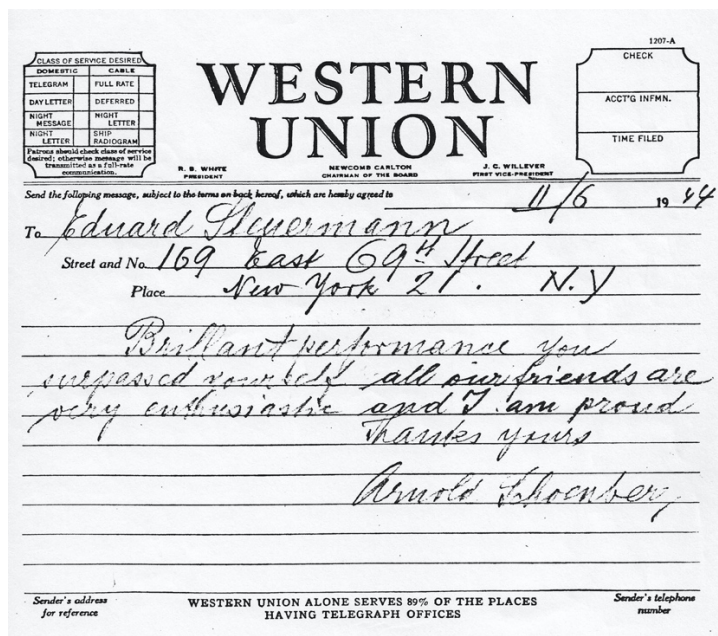 1207-A
CLASS OF SERVICE DESIRED
DOMESTIC CABLE
TELEGRAM FULL RATE
DAY LETTER DEFERRED
NIGHT MESSAGE NIGHT LETTER
NIGHT LETTER SHIP RADIOGRAM
Patrons should check class of service
desired; otherwise message will be
transmitted as a full-rate
communication.
WESTERN
UNION
R. B. WHITE
PRESIDENT
NEWCOMB CARLTON
CHAIRMAN OF THE BOARD
J. C. WILLEVER
FIRST VICE-PRESIDENT
CHECK
ACCT'G INFMN.
TIME FILED
Send the following message, subject to the terms on back hereof, which are hereby agreed to
11/6 19 44
To Eduard Steuermann
Street and No. 169 East 69th Street
Place New York 21. N.Y
Brillant performance you
surpassed yourself all our friends are
very enthusiastic and I am proud
Thanks yours
Arnold Schoenberg
Sender's address
for reference
WESTERN UNION ALONE SERVES 89% OF THE PLACES
HAVING TELEGRAPH OFFICES
Sender's telephone
number